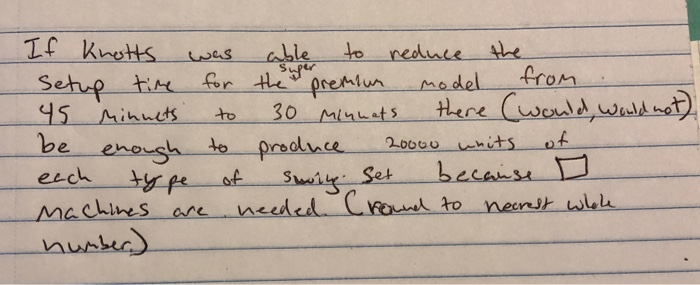 If Knotts was able to reduce the
Setup time for the super premium model from
45 Minuets to 30 Minuats there (would, would not)
be enough to produce 20000 units of
each type of Swing Set because □
Machines are needed. (round to nearest whole
number.)